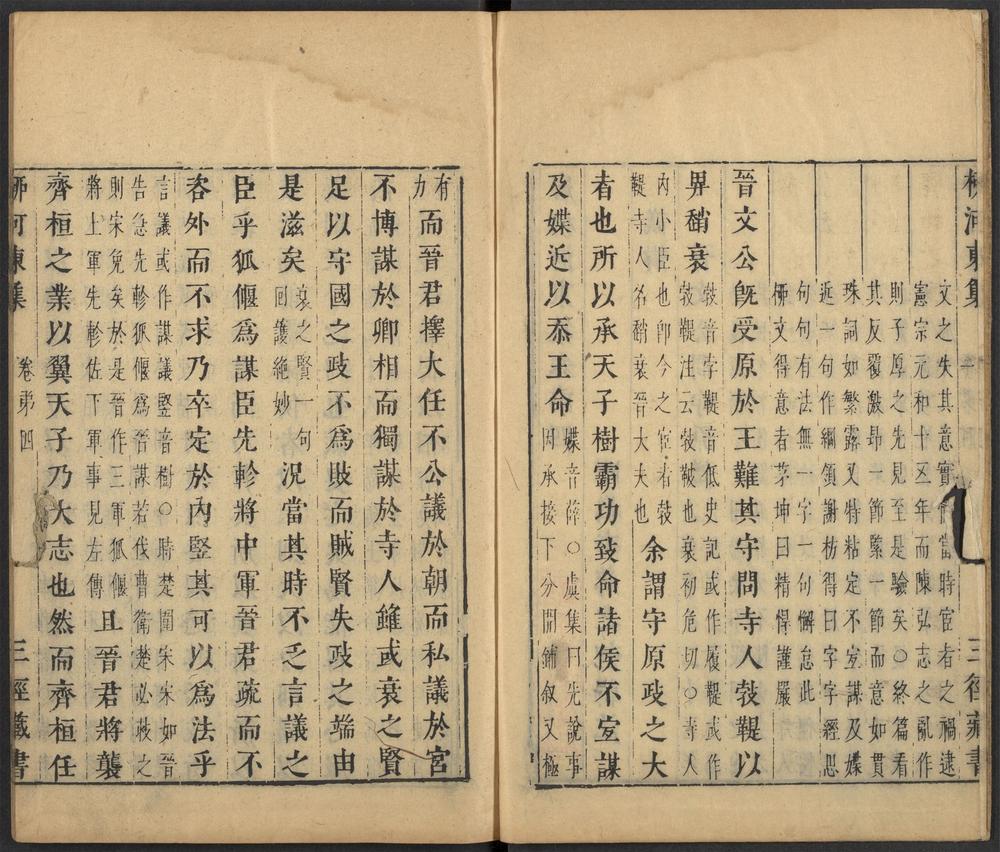 柳河東集 三徑藏書
文之失其意實悼當時宦者之禍逮
憲宗元和十五年而陳弘志之亂作
則子厚之先見至是驗矣○終篇看
其反覆激昂一節緊一節而意如貫
珠詞如繁露又特粘定不宜謀及媟
近一句作綱領謝枋得曰字字經思
句句有法無一字一句懈怠此
柳文得意者茅坤曰精悍謹嚴
晉文公旣受原於王難其守問寺人㪍鞮以
畀趙衰㪍音孛鞮音低史記或作履鞮或作
㪍鞮注云㪍鞁也衰初危切○寺人
內小臣也卽今之宦者㪍
鞮寺人名趙衰晉大夫也余謂守原政之大
者也所以承天子樹霸功致命諸侯不宜謀
及媟近以忝王命媟音薛○虞集曰先說事
因承接下分開鋪叙又極
有
力而晉君擇大任不公議於朝而私議於宮
不博謀於卿相而獨謀於寺人雖或衰之賢
足以守國之政不爲敗而賊賢失政之端由
是滋矣衰之賢一句
回護絶妙況當其時不乏言議之
臣乎狐偃爲謀臣先軫將中軍晉君疏而不
咨外而不求乃卒定於內竪其可以爲法乎
言議或作謀議竪音樹○時楚圍宋宋如晉
告急先軫狐偃爲晉謀若伐曹衞楚必救之
則宋免矣於是晉作三軍狐偃
將上軍先軫佐下軍事見左傳且晉君將襲
齊桓之業以翼天子乃大志也然而齊桓任
柳河東集 卷第四 三徑藏書